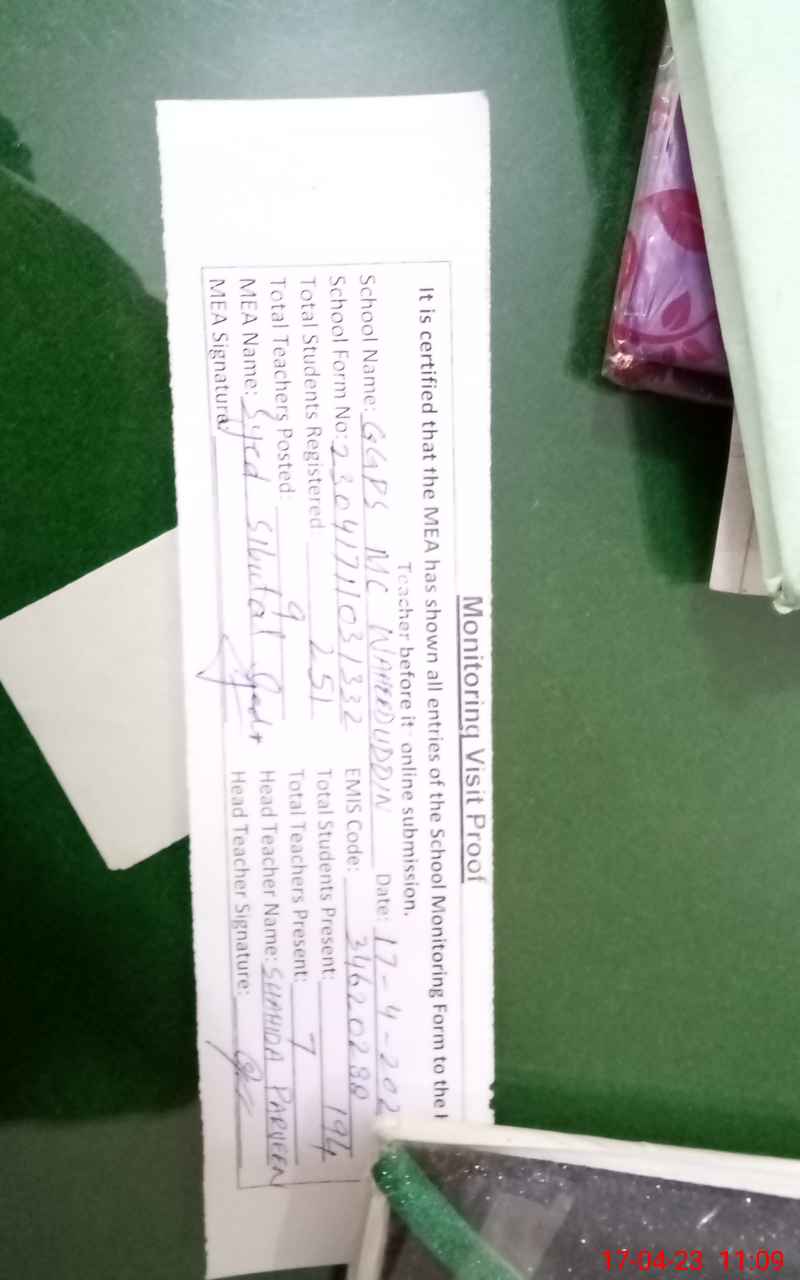 Monitoring Visit Proof
It is certified that the MEA has shown all entries of the School Monitoring Form to the
Teacher before it online submission.
School Name: GGPS MC WAHEEDUDDIN Date: 17-4-202
School Form No: 23041711031332 EMIS Code: 34620288
Total Students Registered 251 Total Students Present: 194
Total Teachers Posted: 9 Total Teachers Present: 7
MEA Name: Syed Head Teacher Name: SHAHIDA PARVEEN
MEA Signature: Head Teacher Signature:
17-04-23 11:09